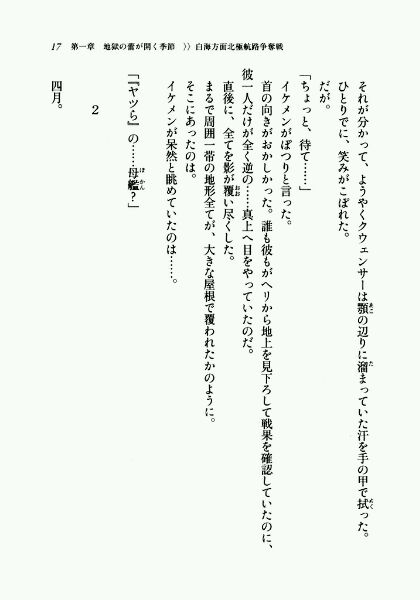 17 第一章 地獄の蕾が開く季節 〉〉白海方面北極航路争奪戦
それが分かって、ようやくクウェンサーは顎の辺りに溜まっていた汗を手の甲で拭った。
ひとりでに、笑みがこぼれた。
だが。
「ちょっと、待て……」
イケメンがぽつりと言った。
首の向きがおかしかった。誰も彼もがヘリから地上を見下ろして戦果を確認していたのに、
彼一人だけが全く逆の……真上へ目をやっていたのだ。
直後に、全てを影が覆い尽くした。
まるで周囲一帯の地形全てが、大きな屋根で覆われたかのように。
そこにあったのは。
イケメンが呆然と眺めていたのは……。
「『ヤツら』の……母艦？」
2
四月。